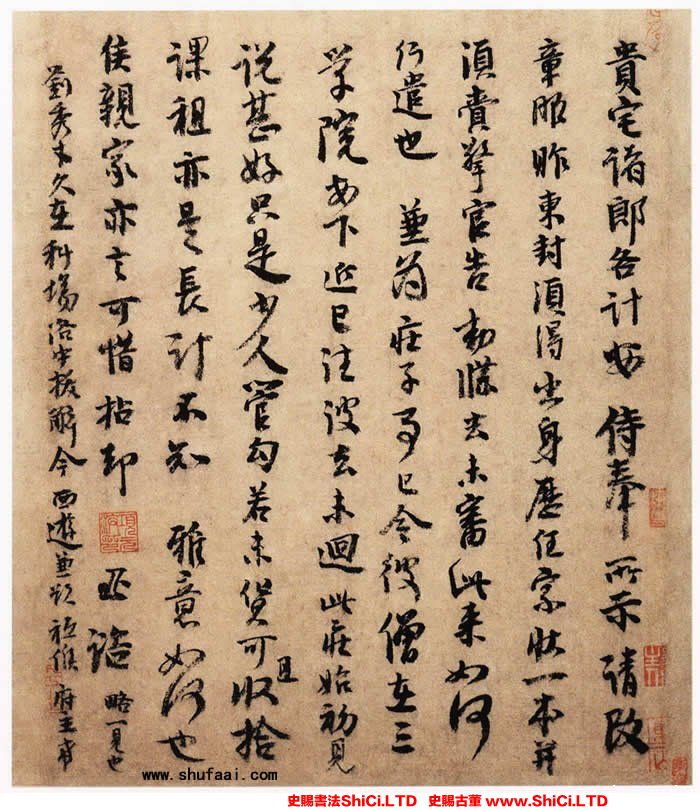 貴宅諸郎各計安 侍奉 所示請改
章服昨東封須得出身歷任家狀一本并
須賫擎官告勑牒去未審此來如何
行遣也 兼為莊子事已令彼僧在三
学院安下近已往彼去未迴此莊始初見
说甚好只是少人管勾若未貨可且收拾
课租亦是長計不知 雅意如何也
侯親家亦言可惜拈却 亚諮 略一見也
劉秀才久在科場洛中拔解今西遊兼欲祗候 府主
www.shufaai.com
史賜書法ShiCi.LTD 史賜古董 www.ShiCi.LTD